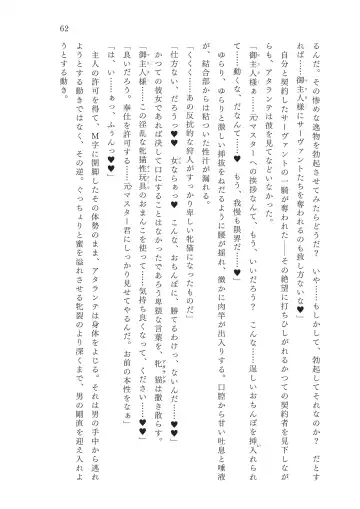 62
るんだ。その惨めな逸物を勃起させてみたらどうだ？　いや……もしかして、勃起してそれなのか？　だとす
れば……御主人様にサーヴァントたちを奪われるのも致し方ないな♥」
自分と契約したサーヴァントの一騎が奪われた――その絶望に打ちひしがれるかつての契約者を見下しなが
らも、アタランテは彼を見てなどいなかった。
「御主人様ぁ……元マスターへの挨拶なんて、もう、いいだろう？　こんな……逞しいおちんぽを挿入れられ
て……動くな、だなんて……♥　もう、我慢も限界だ……♥」
ゆらり、ゆらりと激しい挿抜をねだるように腰が揺れ、微かに肉竿が出入りする。口腔から甘い吐息と唾液
が、結合部からは粘ついた性汁が漏れる。
「くくく……あの反抗的な狩人がすっかり卑しい牝猫になったものだ」
「仕方ない、だろうっ♥♥　女ならぁっ♥　こんな、おちんぽに、勝てるわけっ、ないんだ……♥♥」
かつての彼女であれば決して口にすることはなかったであろう卑猥な言葉を、牝猫は撒き散らす。
「御主人様……♥　この淫乱な牝猫性玩具のおまんこを使って……気持ち良くなって、ください……♥♥」
「良いだろう。奉仕を許可する……元マスター君にしっかり見せてやるんだ。お前の本性をなぁ」
「は、い……ぁっ、ふぅんっ♥♥」
主人の許可を得て、M字に開脚したその体勢のまま、アタランテは身体をよじる。それは男の手中から逃れ
ようとする動きではなく、その逆。ぐっちょりと蜜を溢れさせる牝裂のより深くまで、男の剛直を迎え入れよ
うとする動き。